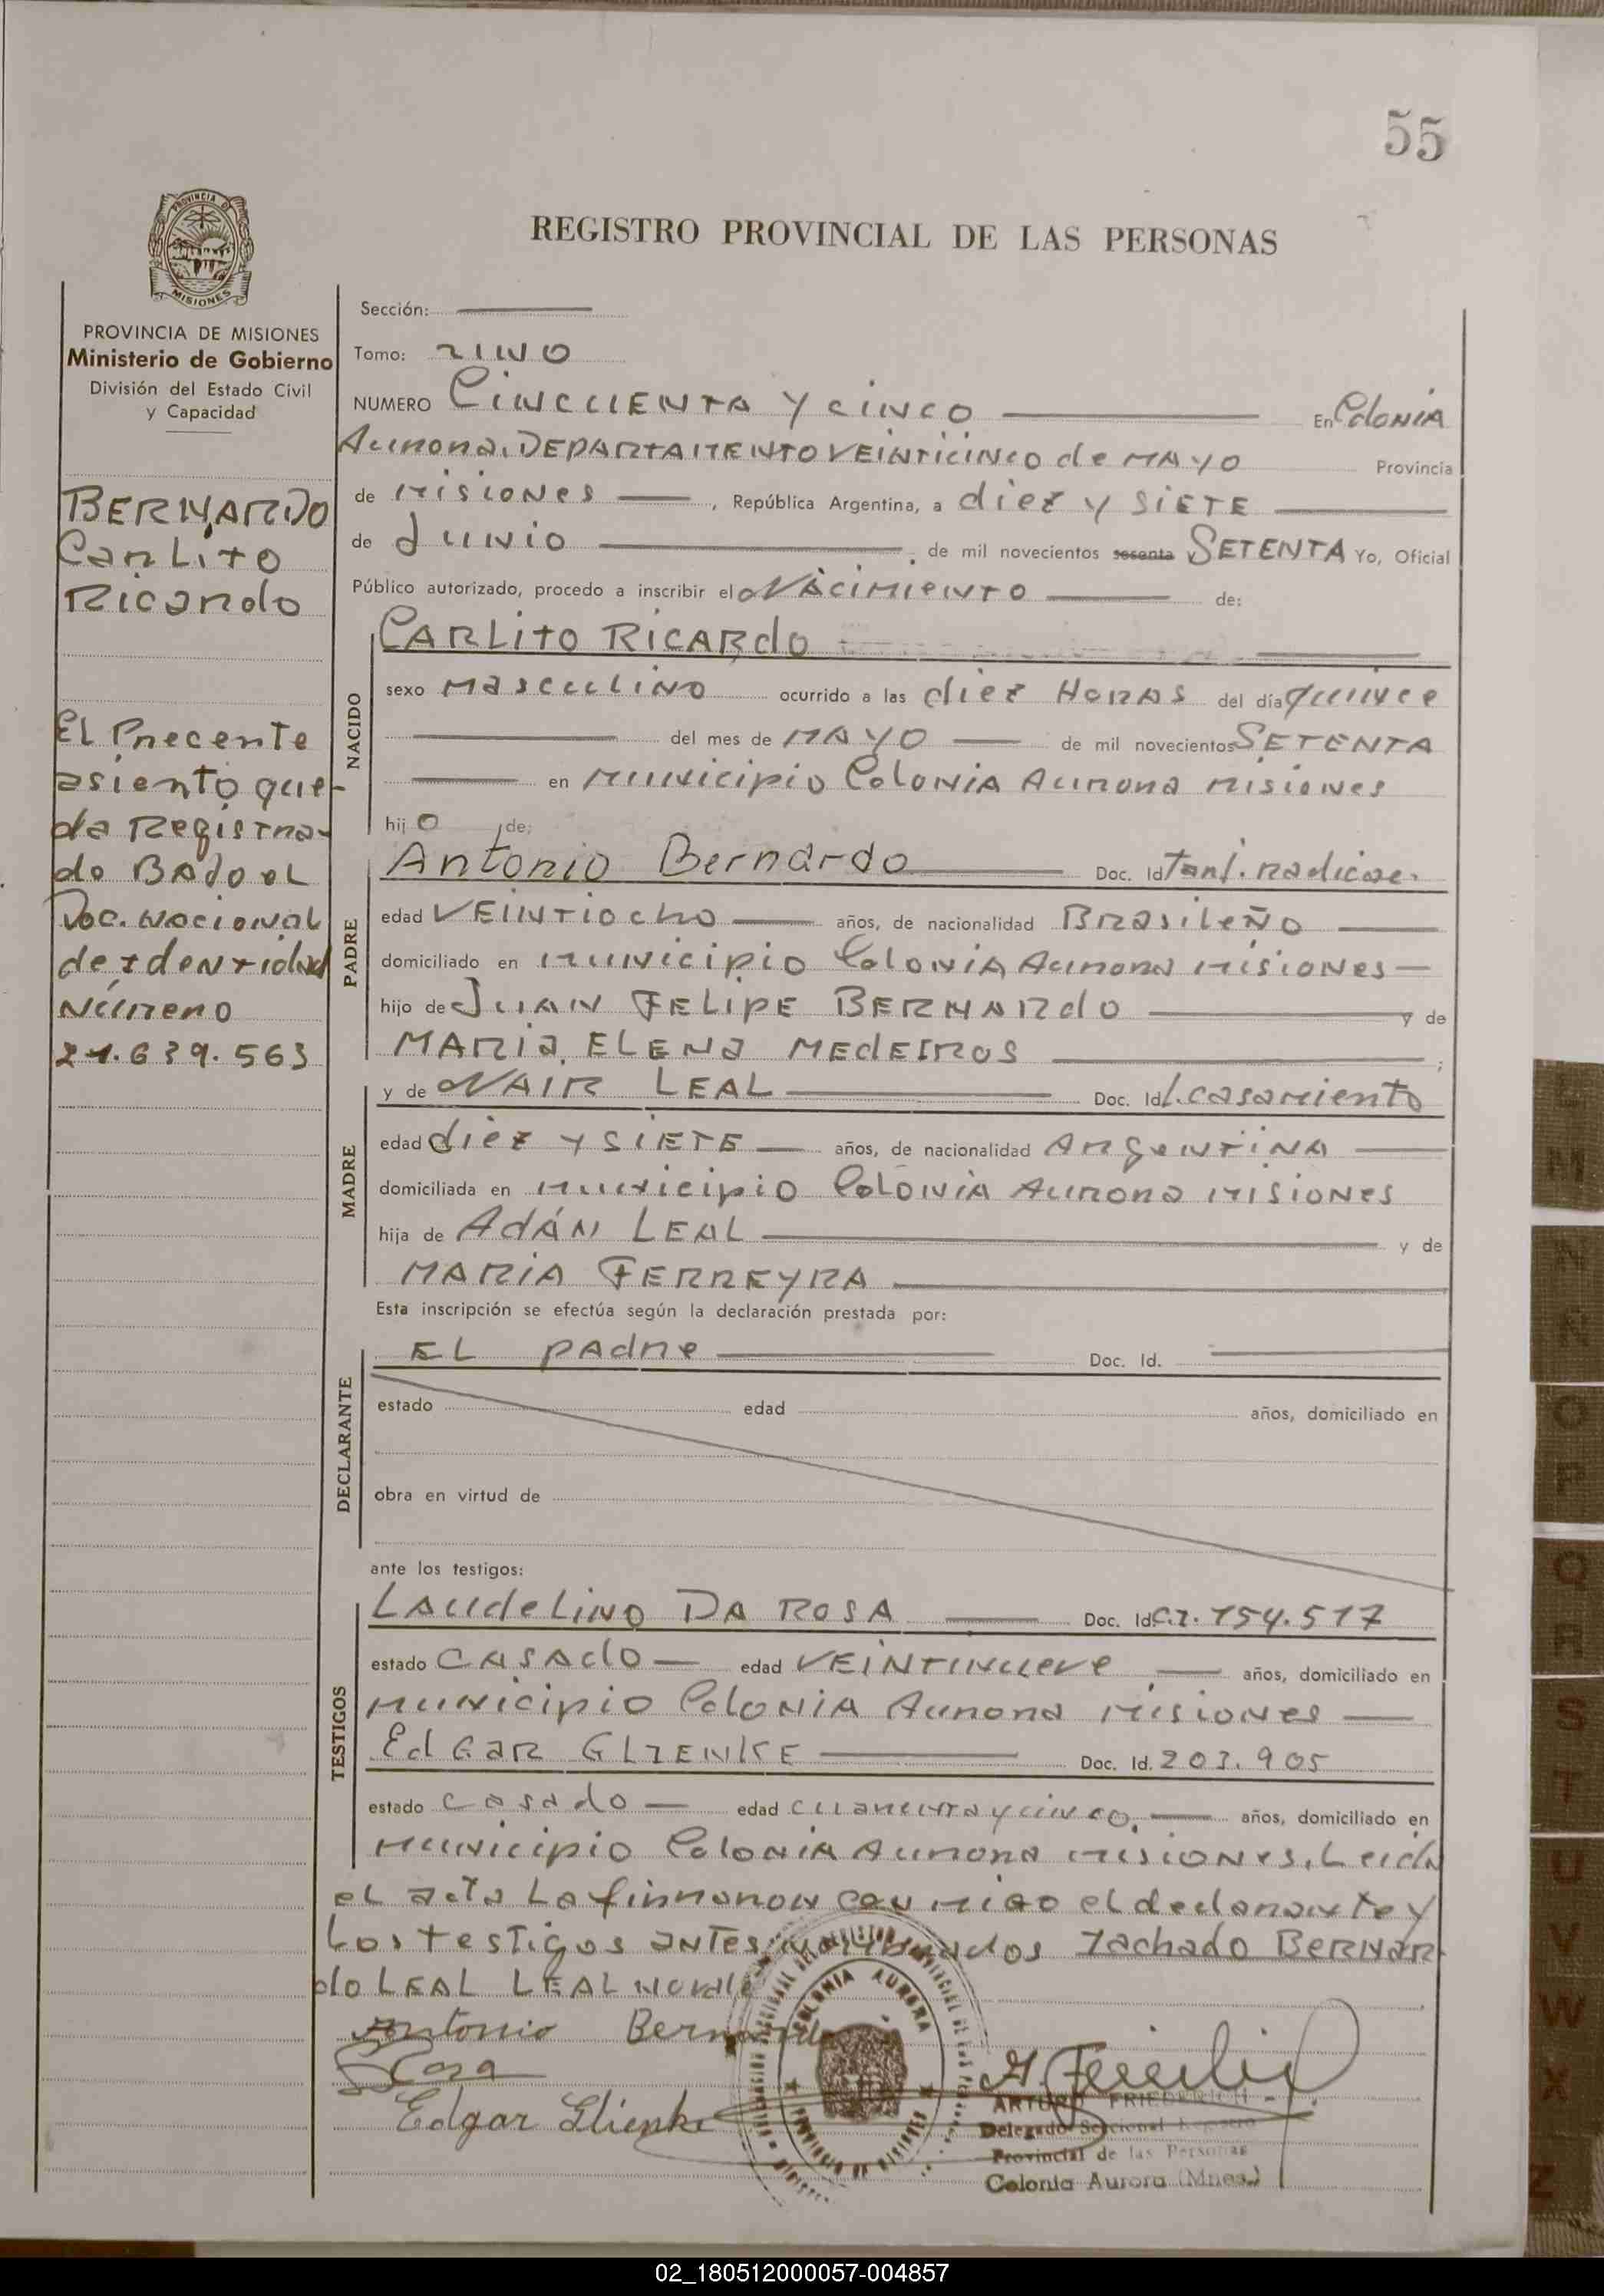 55
REGISTRO PROVINCIAL DE LAS PERSONAS
PROVINCIA DE MISIONES
Ministerio de Gobierno
División del Estado Civil
y Capacidad
BERNARDO
Carlito
Ricardo
El Precente
asiento que-
da Registra-
do BAJO el
Doc. Nacional
de Identidad
Número
21.639.563
Sección:
Tomo: UNO
NUMERO CINCUENTA Y CINCO En Colonia
Aurora. DEPARTAMENTO VEINTICINCO de MAYO Provincia
de Misiones , República Argentina, a diez y SIETE
de Junio , de mil novecientos sesenta SETENTA Yo, Oficial
Público autorizado, procedo a inscribir el Nacimiento de:
NACIDO
CARLITO RICARdo
sexo Masculino ocurrido a las diez HORAS del día quince
del mes de MAYO de mil novecientos SETENTA
en Municipio Colonia Aurora Misiones
hijo de:
PADRE
Antonio Bernardo Doc. Id
edad VEINTIocho años, de nacionalidad Brasileño
domiciliado en Municipio Colonia Aurora Misiones
hijo de JUAN FELIPE BERNARdo y de
MARIA ELENA MEdEIROS ;
MADRE
y de NAIR LEAL Doc. Id l. casamiento
edad diez y SIETE años, de nacionalidad ARgentina
domiciliada en Municipio Colonia Aurora Misiones
hija de AdÁN LEAL y de
MARIA FERREYRA
Esta inscripción se efectúa según la declaración prestada por:
DECLARANTE
EL padre Doc. Id.
estado edad años, domiciliado en
obra en virtud de
ante los testigos:
TESTIGOS
LAUdeLINO DA ROSA Doc. Id C.I. 154.517
estado CASAdO edad VEINTINUEVE años, domiciliado en
Municipio Colonia Aurora Misiones
EdGAR GLIENKE Doc. Id. 203.905
estado casado edad cuarenta y cinco. años, domiciliado en
Municipio Colonia Aurora Misiones. Leida
el acta La firmaron con migo el declarante y
Los testigos antes nombrados Tachado BERNAR
do LEAL LEAL
Antonio Bernardo
Edgar Glienke
COLONIA AURORA
PROVINCIA DE MISIONES
ARTURO FRIEDERICH
Delegado Seccional Registro
Provincial de las Personas
Colonia Aurora (Mnes.)
N
O
P
Q
R
S
T
U
V
W
X
Z
02_180512000057-004857